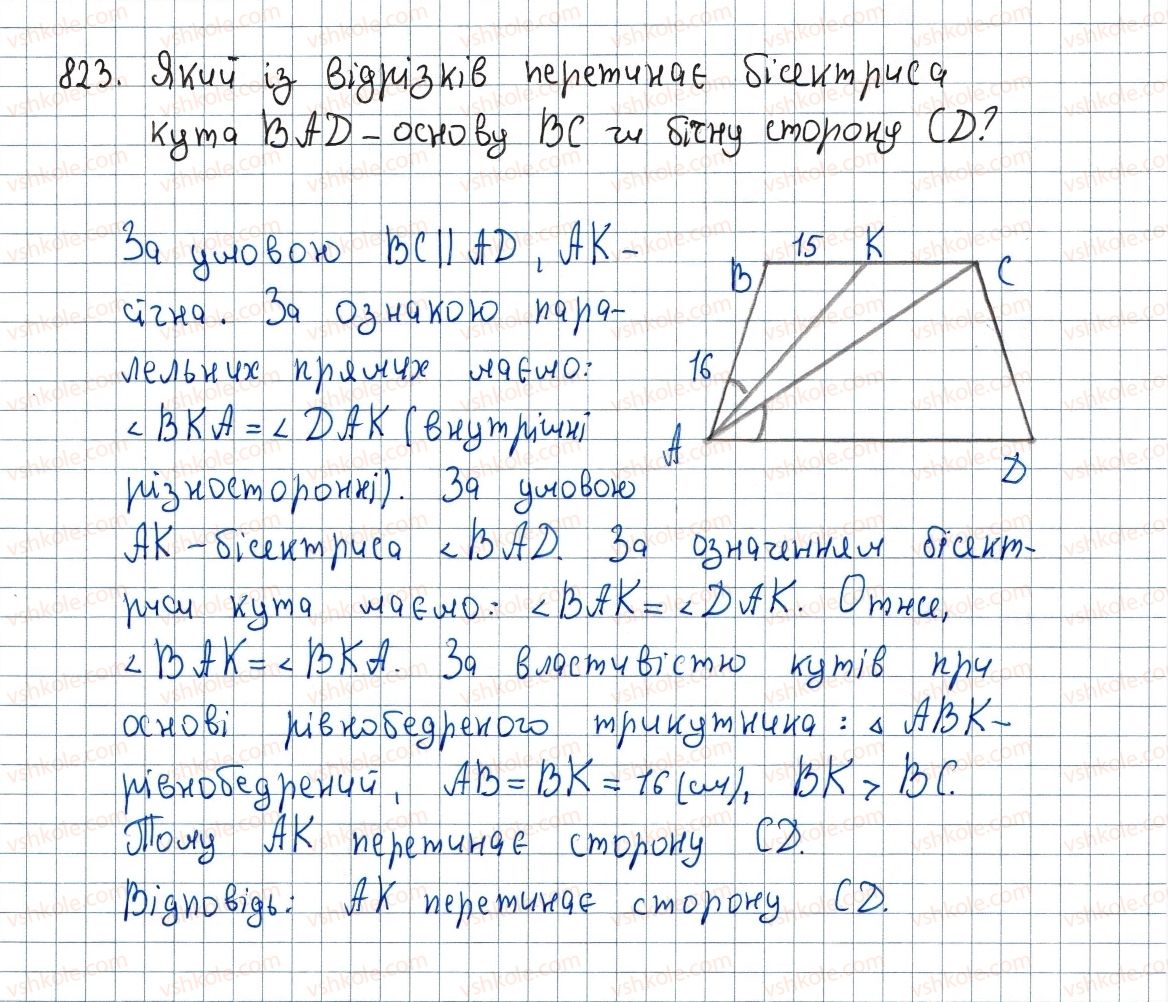 823. Який із відрізків перетинає бісектриса
кута BAD – основу BC чи бічну сторону CD?
За умовою BC || AD, AK –
січна. За ознакою пара-
лельних прямих маємо:
∠BKA = ∠DAK (внутрішні
різносторонні). За умовою
AK – бісектриса ∠BAD. За означенням бісект-
риси кута маємо: ∠BAK = ∠DAK. Отже,
∠BAK = ∠BKA. За властивістю кутів при
основі рівнобедреного трикутника: △ABK –
рівнобедрений, AB = BK = 16 (см), BK > BC.
Тому AK перетинає сторону CD.
Відповідь: AK перетинає сторону CD.
B 15 K C
16
A D
vshkole.com